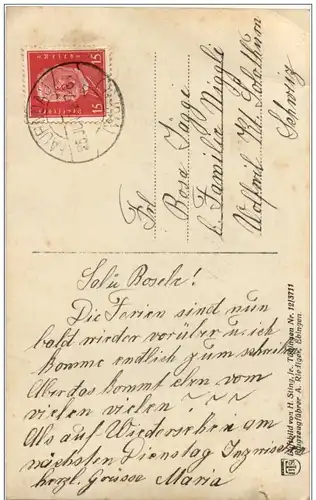 15 15
Frl.
Rosa Jäggi
b. Familie Niggli
Wolfwil Kt. Solothurn
Schweiz
Salü Roseli!
Die Ferien sind nun
bald wieder vorüber u. ich
komme endlich zum schreiben
Aber das kommt eben vom
vielen vielen
Als auf Wiedersehen am
nächsten Dienstag Inzwischen
herzl. Grüsse Maria
Luftbild von H. Sting, jr. Tübingen Nr. 12/3711
Flugzeugführer A. Riediger, Ebingen.